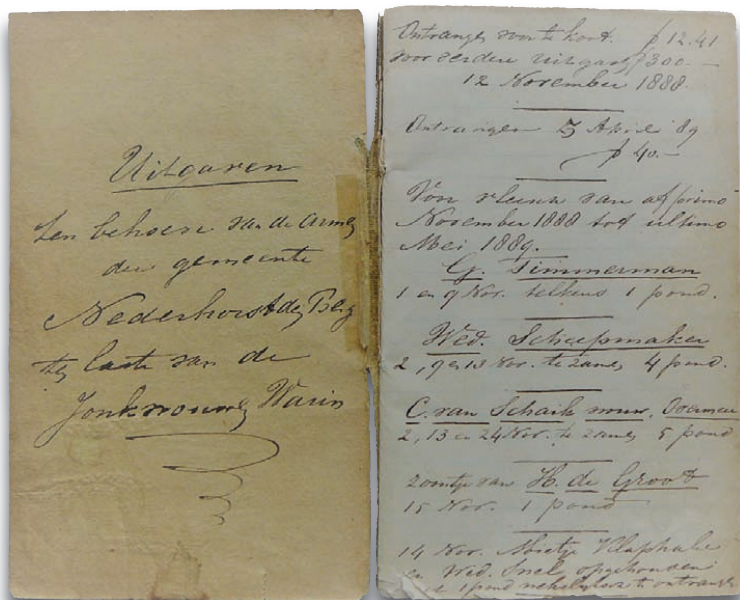 Uitgaven
ten behoeve van de armen
der gemeente
Nederhorst den Berg
ten laste van de
Jonkvrouwe Warin
Ontvangen voor te kort. f 12.41
voor eerdere uitgaaf f 300.—
12 November 1888.
Ontvangen 3 April 89
f 40.—
Voor vleesch van af primo
November 1888 tot ultimo
Mei 1889.
G. Timmerman
1 en 9 Nov. telkens 1 pond.
Wed. Scheepmaker
2, 9 en 13 Nov. te zamen 4 pond.
C. van Schaik
2, 13 en 24 Nov. te zamen 5 pond
zoontje van H. de Groot
15 Nov. 1 pond
14 Nov. Klaphake
en Wed. Snel opgehouden
1 pond te ontvangen